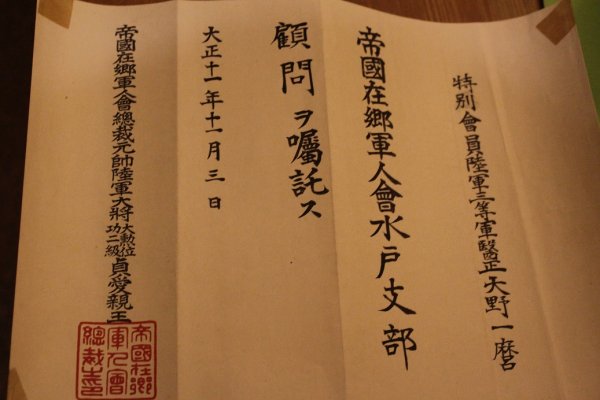 特別會員陸軍三等軍醫正天野一麿
帝國在郷軍人會水戸支部
顧問ヲ囑託ス
大正十一年十一月三日
帝國在郷軍人會總裁元帥陸軍大將大勲位功二級貞愛親王
帝國在郷
軍人會
總裁之印